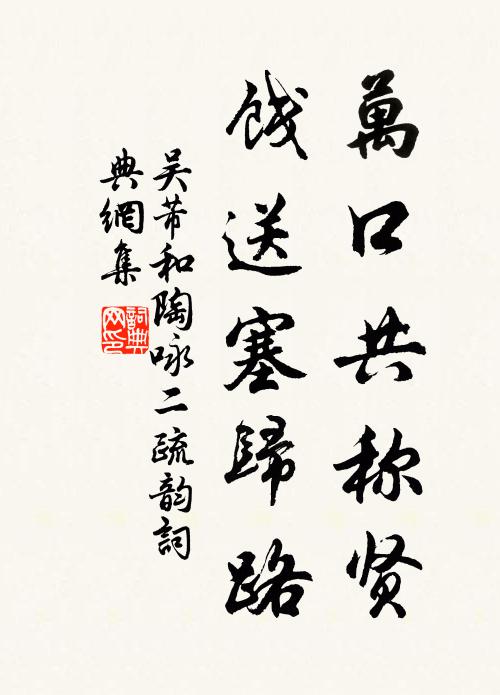 萬口共称贤
饯送塞歸路
吴芾和陶咏二疏韵詞
典網集
詞典
网印